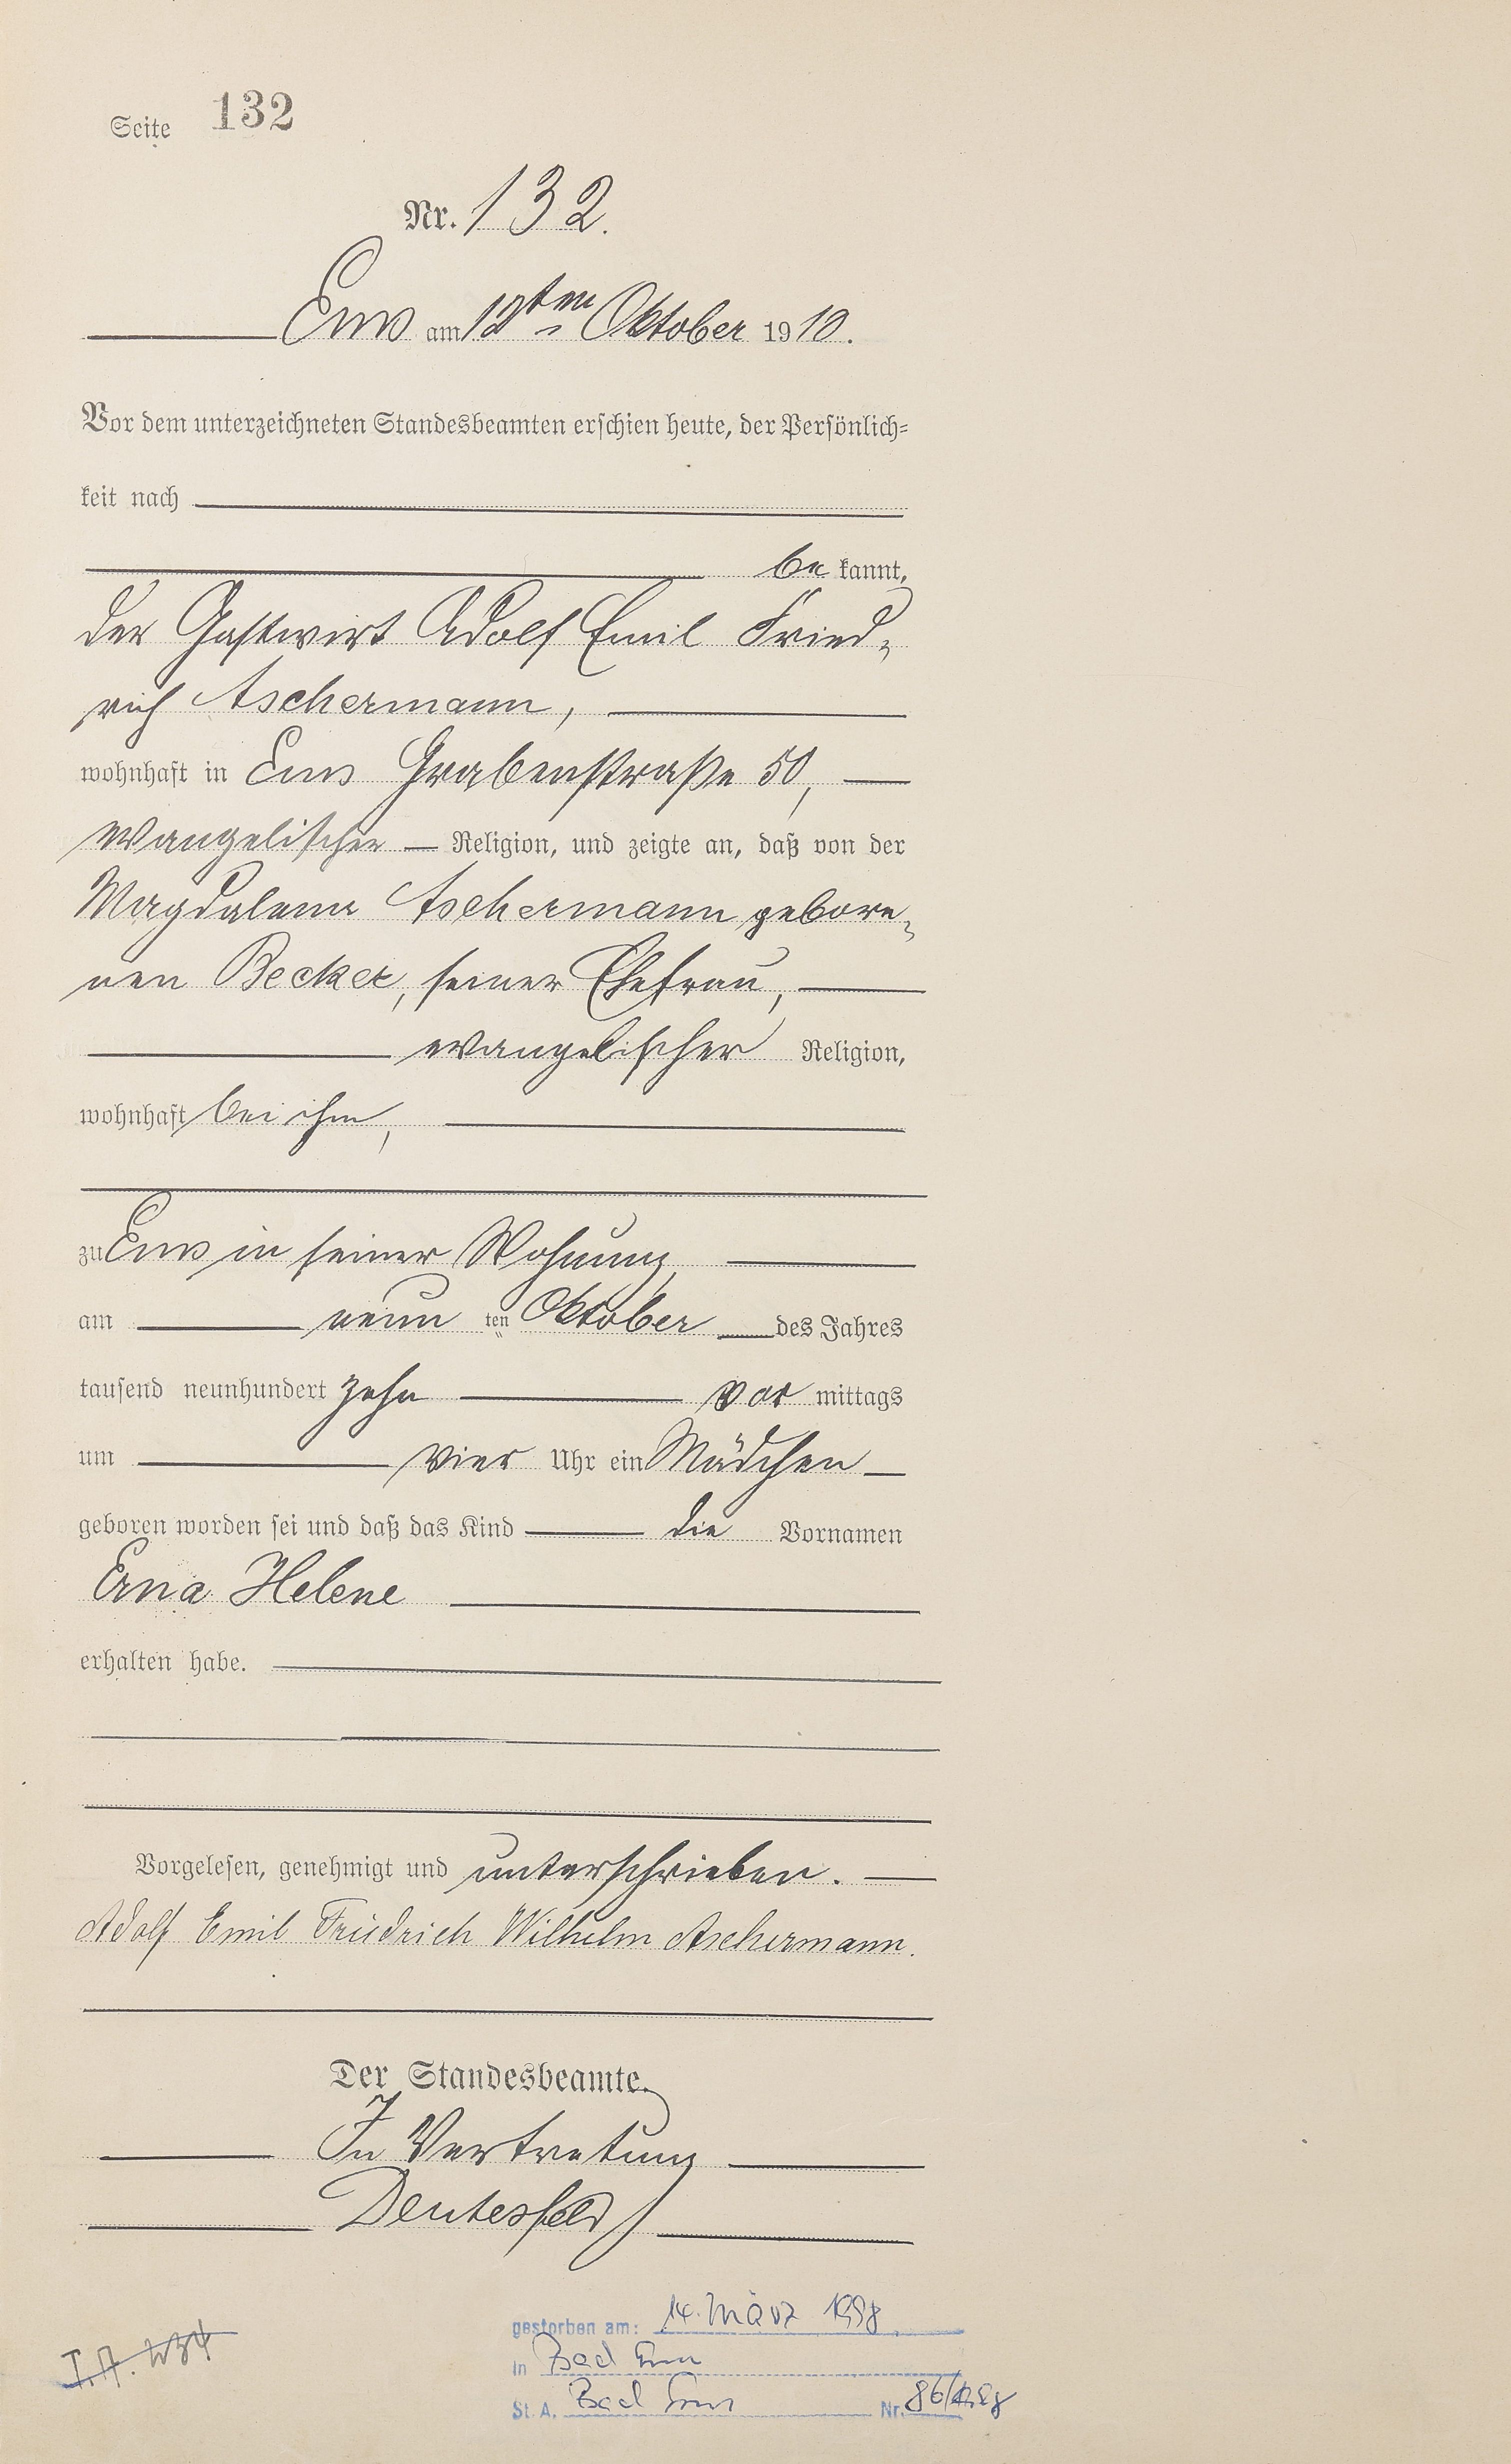 Seite 132
Nr. 132.
Ems am 12ten Oktober 1910.
Vor dem unterzeichneten Standesbeamten erschien heute, der Persönlich-
keit nach
bekannt,
der Gastwirt Adolf Emil Fried-
rich Aschermann,
wohnhaft in Ems Grabenstraße 50,
evangelischer Religion, und zeigte an, daß von der
Magdalena Aschermann gebore-
nen Becker, seiner Ehefrau,
evangelischer Religion,
wohnhaft bei ihm,
zu Ems in seiner Wohnung,
am neunten Oktober des Jahres
tausend neunhundert zehn vormittags
um vier Uhr ein Mädchen
geboren worden sei und daß das Kind die Vornamen
Erna Helene
erhalten habe.
Vorgelesen, genehmigt und unterschrieben.
Adolf Emil Friedrich Wilhelm Aschermann.
Der Standesbeamte.
In Vertretung
Deutesfeld
gestorben am: 14. März 1998
in Bad Ems
St. A. Bad Ems Nr. 86/1998